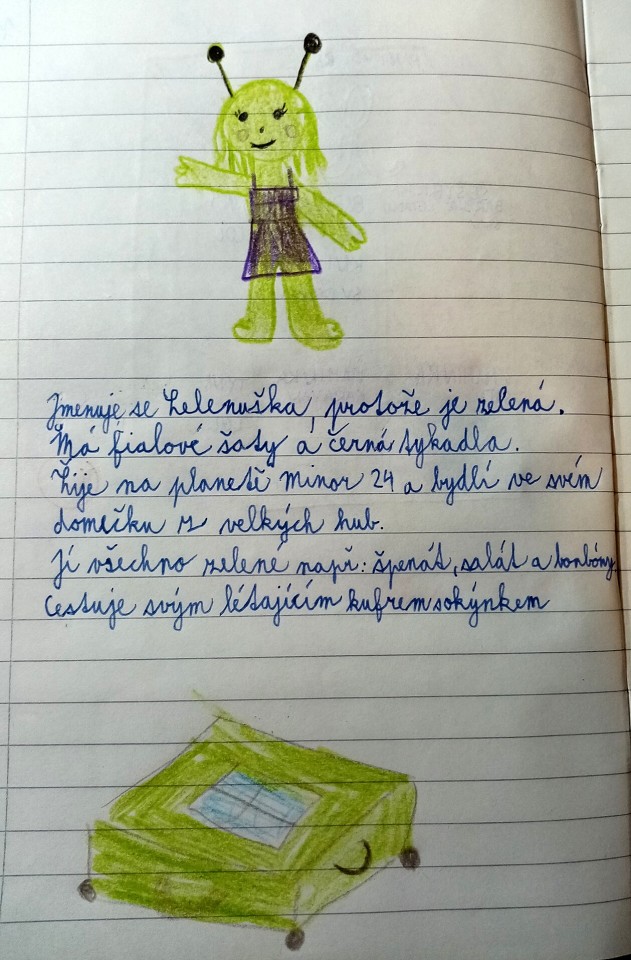 Jmenuje se Zelenuška, protože je zelená.
Má fialové šaty a černá tykadla.
Žije na planetě Minor 24 a bydlí ve svém
domečku z velkých hub.
Jí všechno zelené např: špenát, salát a bonbóny
Cestuje svým létajícím kufrem sokýnkem